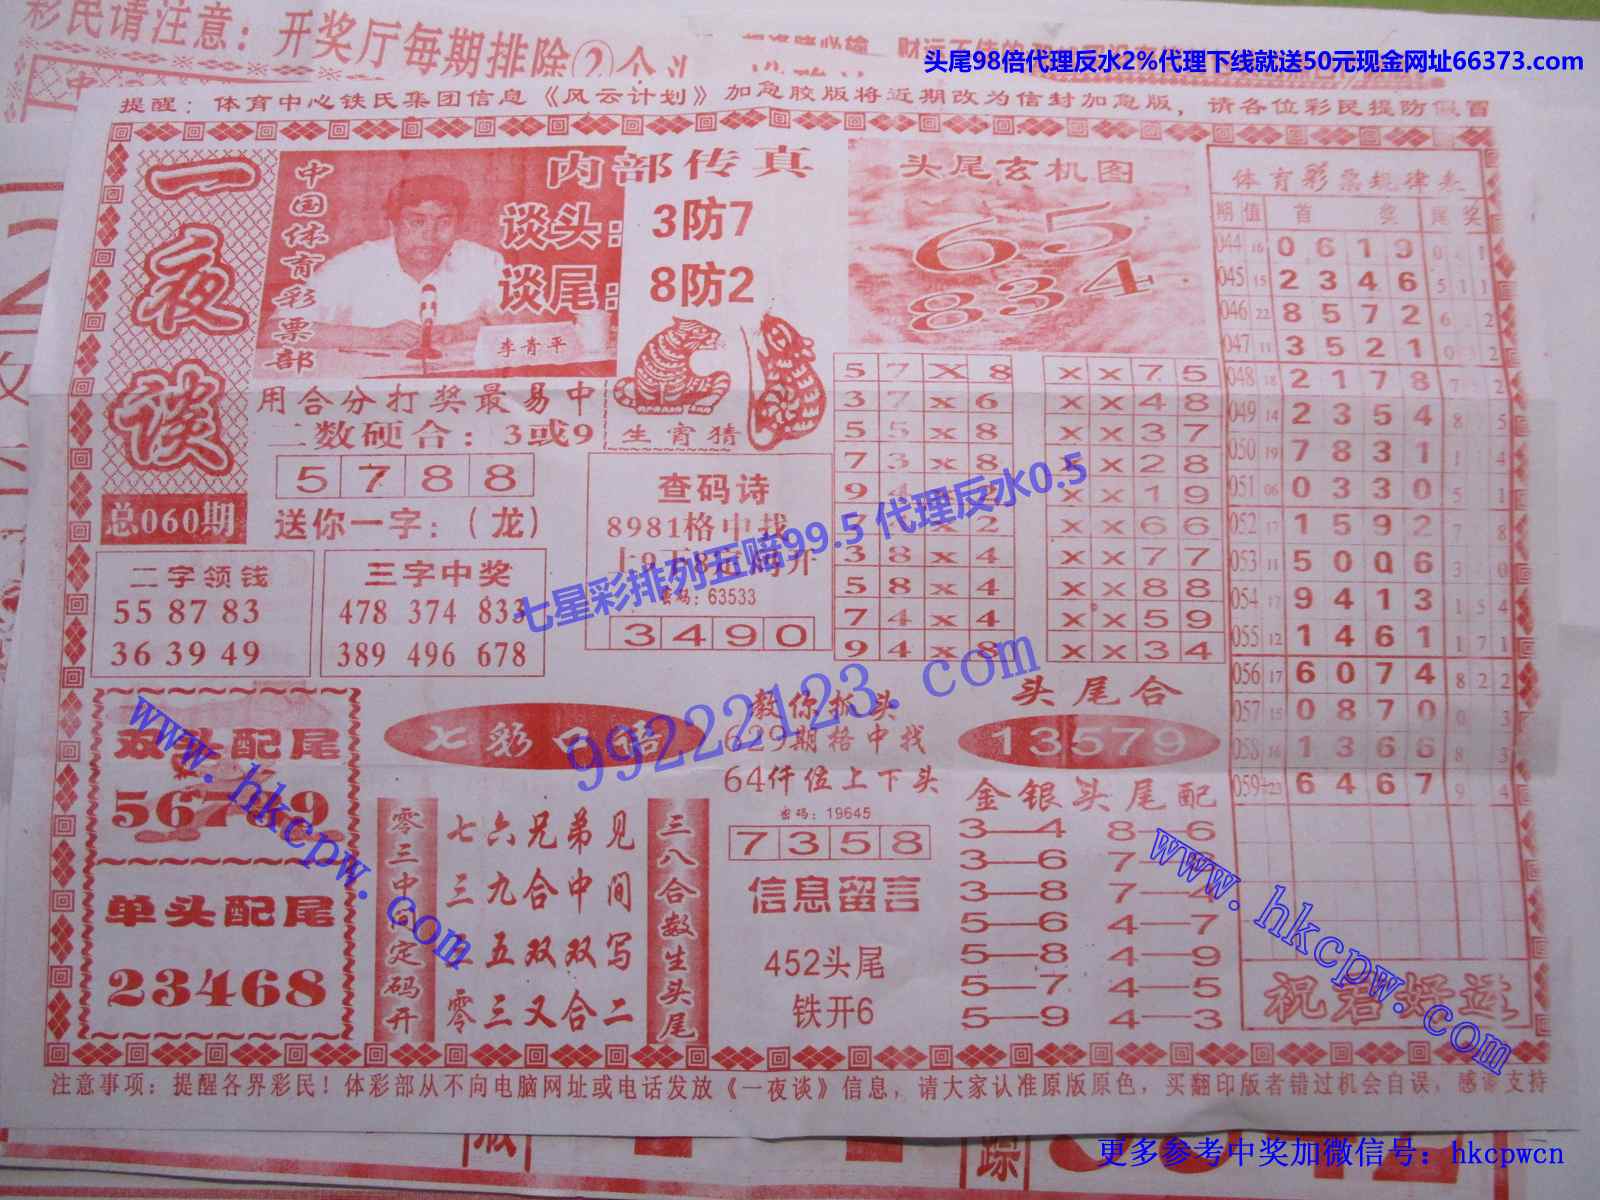 彩民请注意：开奖厅每期排除②个头
头尾98倍代理反水2%代理下线就送50元现金网址66373.com
提醒：体育中心铁氏集团信息《风云计划》加急胶版将近期改为信封加急版，请各位彩民提防假冒
一夜谈
总060期
中国体育彩票部
李青平
内部传真
谈头：3防7
谈尾：8防2
用合分打奖最易中
二数硬合：3或9
5 7 8 8
送你一字：（龙）
生肖猜
头尾玄机图
65
834
二字领钱
55 87 83
36 39 49
三字中奖
478 374 833
389 496 678
查码诗
8981格中找
密码：63533
3 4 9 0
5 7 X 8
3 7 x 6
5 5 x 8
7 3 x 8
3 8 x 4
5 8 x 4
7 4 x 4
9 4 x 8
x x 7 5
x x 4 8
x x 3 7
x x 2 8
x x 1 9
x x 6 6
x x 7 7
x x 8 8
x x 5 9
x x 3 4
体育彩票规律表
期 值 首 奖 尾 奖
044 16 0 6 1 9
045 15 2 3 4 6 5 1 1
046 22 8 5 7 2 6 2
047 11 3 5 2 1 0 2
048 18 2 1 7 8 7 2
049 14 2 3 5 4 8 5
050 19 7 8 3 1 1 4
051 06 0 3 3 0 5 1
052 17 1 5 9 2 7 8
053 11 5 0 0 6 3 0
054 17 9 4 1 3 1 5 4
055 12 1 4 6 1 1 7 1
056 17 6 0 7 4 8 2 2
057 15 0 8 7 0 0 3
058 16 1 3 6 6 8 3
059 23 6 4 6 7 9 4
祝君好运
双头配尾
56789
单头配尾
23468
七彩口语
零三中间定码开
七六兄弟见
三九合中间
五双双写
零三又合二
三八合数生头尾
教你抓头
629期格中找
64仟位上下头
密码：19645
7 3 5 8
信息留言
452头尾
铁开6
头尾合
13579
金银头尾配
3—4 8—6
3—6
3—8 7—4
5—6 4—7
5—8 4—9
5—7 4—5
5—9 4—3
七星彩排列五赔99.5 代理反水0.5
99222123.com
www.hkcpw.com
www.hkcpw.com
注意事项：提醒各界彩民！体彩部从不向电脑网址或电话发放《一夜谈》信息，请大家认准原版原色，买翻印版者错过机会自误，感谢支持
更多参考中奖加微信号：hkcpwcn